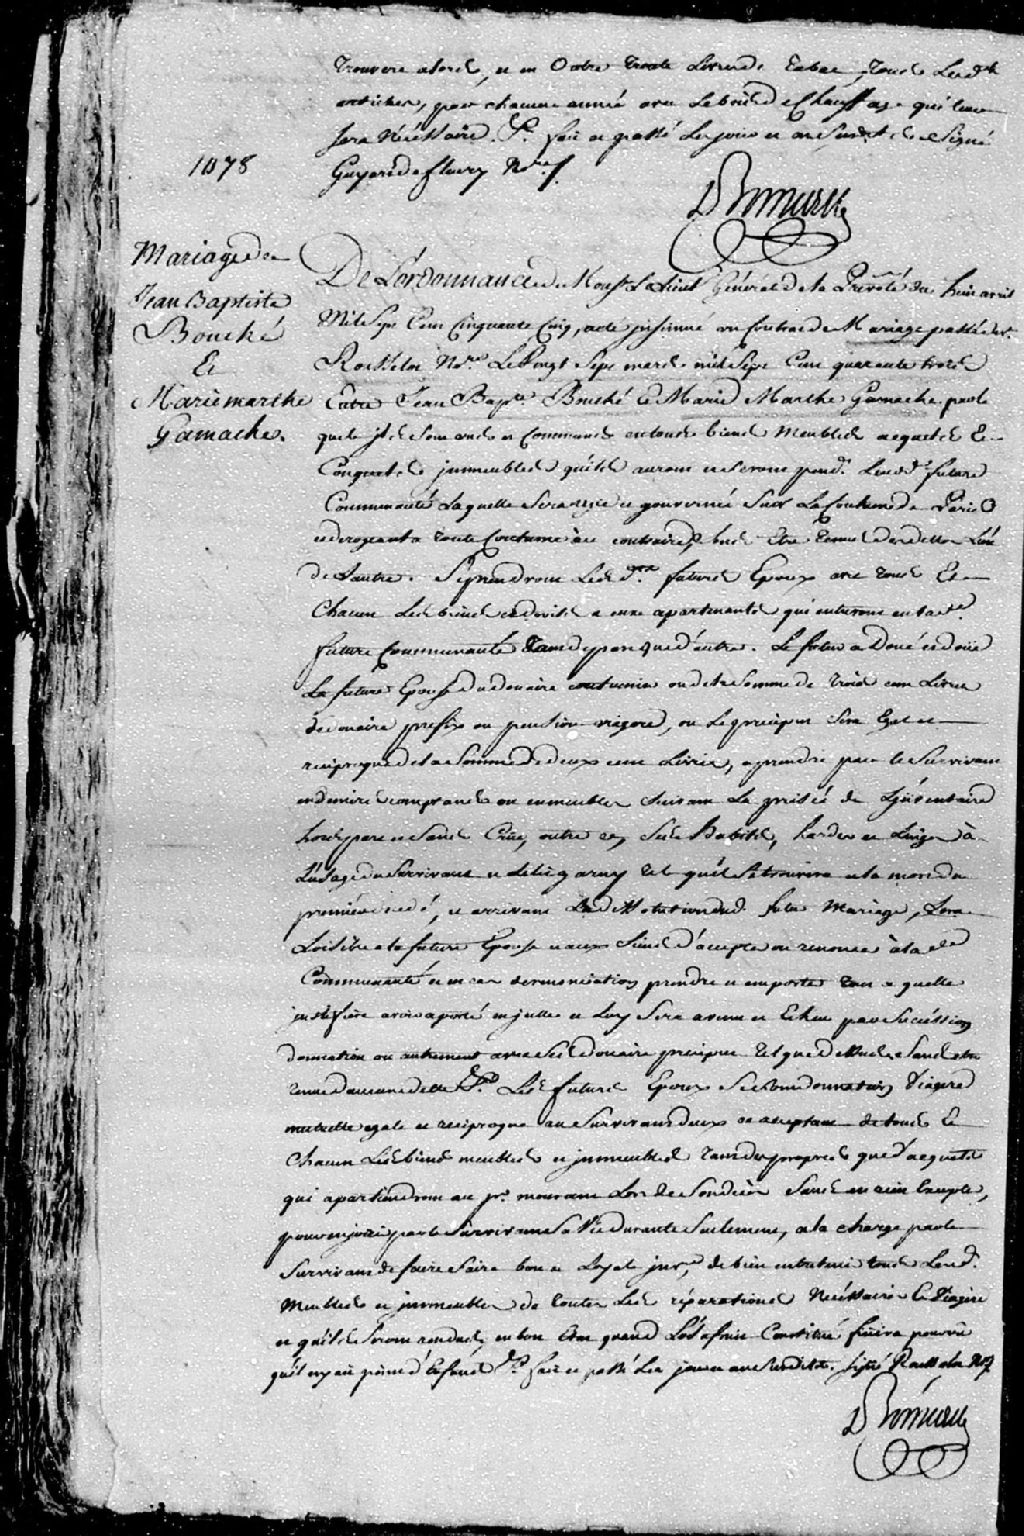 trouvere alors, et en Outre trente Livres de tabac, tous Lesd.
articles, par chacune année avec Le bois de Chauffage qui leur
sera Nécéssaire. &a. fait et passé Les jours et an susd. et signé
1078
Guyart de fleury No.re /.
D Romeurt
Mariage de
Jean Baptiste
Bouché
Et
Marie marthe
Gamache.
De L'ordonnance de Mons.r Le Lieut. Général de la Prevoté du huit avril
Mil Sept Cent Cinquante Cinq, acte insinué au Contrac de Mariage passé dev.t
Rousselot No.re Le Vingt Sept mars mil Sept Cent quarante trois
Entre Jean Bap.te Bouché et Marie Marthe Gamache, par le
quel ils Sont uns et Communs en tous biens Meubles acquets Et
Conquets immeubles qu'ils auront et feront pend.t Leurd.e future
Communauté Laquelle Sera régie et gouvernée Suiv. La Coutume de Paris
et derogeant a toute Coutume à ce contraire, sans être tenus des dettes L'un
de L'autre. Se prendront Lesd. futurs Epoux avec tous Et
Chacun Les biens et droits a eux apartenants qui entreront en lad.e
future Communauté tant de part que d'autre. Le futur a Doué et doüe
La future Epouse du douaire coutumier ou de la Somme de trois cent Livres
de douaire prefix ou pention viagere, ou Le préciput Sera Egal et
reciproque de la Somme de deux cent Livres, a prendre par le Survivant
en deniers comptants ou en meubles Suivant La prisée de L'inventaire
hors part et Sans Crüe, outre ce Ses Habits, hardes et Linge à
L'usage du Survivant et Le lit garny tel qu'il se trouvera a la mort du
premier decedé, et arrivant La dissolution dud. futur Mariage, Sera
Loisible a la future Epouse et aux Siens d'accepter ou renoncer à lad.e
Communauté et en cas de renonciation prendre et emporter tout ce quelle
justifiera avoir aporté en jcelle et Luy Sera avenu et Echeu par Succéssion
donnation ou autrement avec Ses douaire preciput tel que dessus Sans etre
tenue d'aucune dette &a. Les futurs Epoux Se sont donnation Viagere
mutuelle egale et reciproque au Survivant deux ce acceptant de tous Et
Chacun Les biens meubles et immeubles tant de propres que d'acquets
qui apartiendront au pr. mourant Lors de Son décès Sans en rien Excepter,
pour en jouir par le Survivant Sa Vie durante Seulement, a la charge par le
Survivant de faire faire bon et Loyal inv.re de bien entretenir tous Lesd.
Meubles et immeubles de toutes Les réparations Nécéssaires Le Viagere
et qu'ils Seront rendus en bon Etat quand L'usufruit Constitué finira pourvu
qu'il n'y ait point d'Enfants &a. fait et passé Les jours et an Susdits. Signé Rousselot No.re
D Romeurt